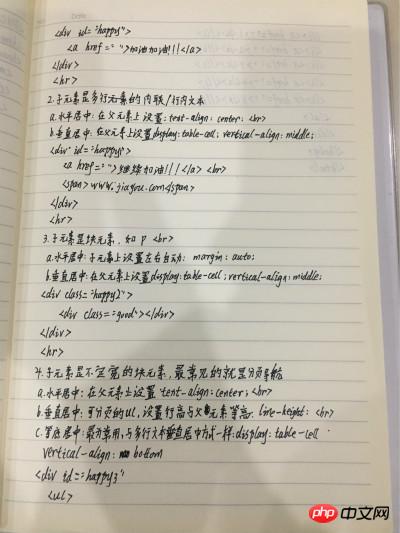 <div id="happy">
<a href=" ">加油加油!!!</a>
</div>
<hr>
2.子元素是多行元素的内联/行内文本
a.水平居中:在父元素上设置:text-align:center; <br>
b.垂直居中:在父元素上设置display:table-cell; vertical-align:middle;
<div id="happy1">
<a href=" ">继续加油!!!</a> <br>
<span>www.jiayou.com</span>
</div>
<hr>
3.子元素是块元素,如 p <br>
a.水平居中:子元素上设置左右自动: margin:auto;
b.垂直居中:在父元素上设置display:table-cell;vertical-align:middle;
<div class="happy2">
<div class="good"></div>
</div>
<hr>
4.子元素是不定宽的块元素,最常见的就是分页导航
a.水平居中:在父元素上设置 text-align:center;<br>
b.垂直居中:可分页的ul,设置行高与父元素等高.line-height: <br>
C.底居中:最分常用,与多行文本垂直居中方式一样:display:table-cell
vertical-align: bottom
<div id="happy3"
<ul>
php 中文网